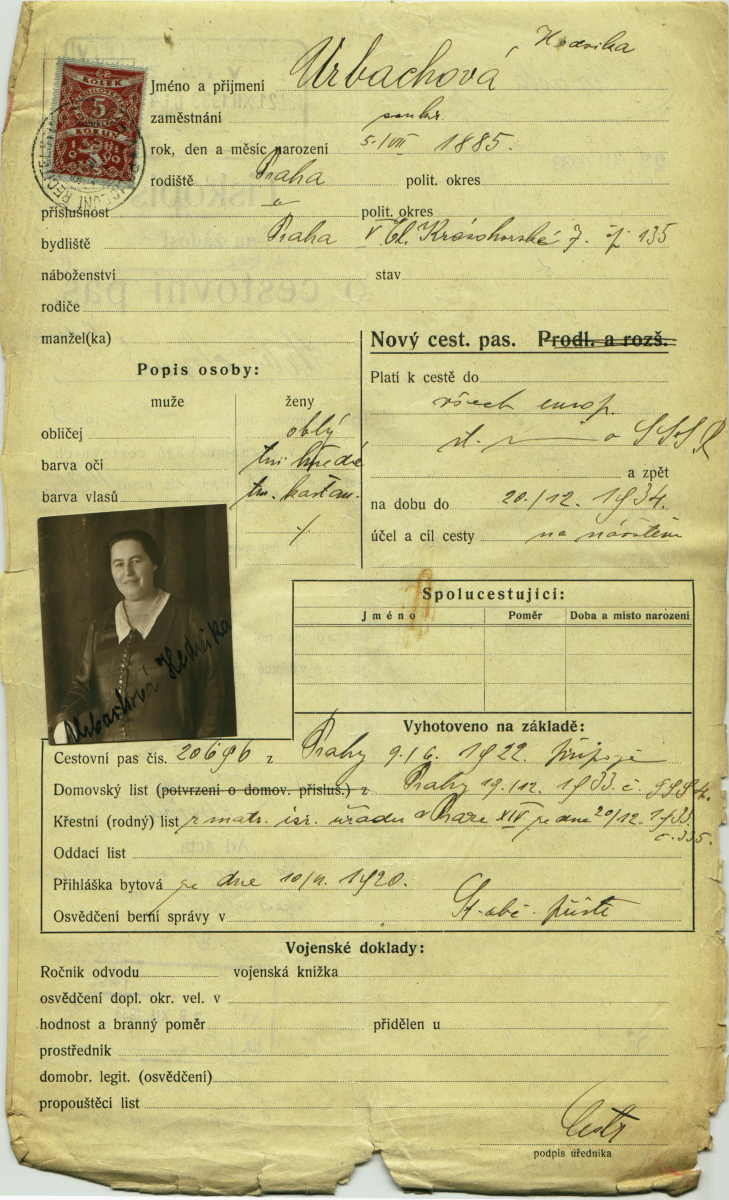 KOLEK
5
KORUN
Jméno a přijmení Urbachová Hedvika
zaměstnání soukr.
rok, den a měsíc narození 5./VII 1885.
rodiště Praha polit. okres
příslušnost " polit. okres
bydliště Praha V. El. Krásnohorské 7. čp 135
náboženství stav
rodiče
manžel(ka)
Popis osoby:
muže ženy
obličej oblý
barva očí tm. hnědé
barva vlasů tm. kaštan.
Nový cest. pas. Prodl. a rozš.
Platí k cestě do
všech europ.
st. SSSR
a zpět
na dobu do 20./12. 1934.
účel a cíl cesty na návštěvu
Urbachová Hedvika
Spolucestující:
Jméno Poměr Doba a místo narození
Vyhotoveno na základě:
Cestovní pas čís. 20696 z Prahy 9./6. 1922.
Domovský list (potvrzení o domov. přísluš.) z Prahy 19./12. 1933. č.
Křestní (rodný) list z matr. isr. úřadu v Praze XIV ze dne 20/12. 1933.
č. 335.
Oddací list
Přihláška bytová ze dne 1920.
Osvědčení berní správy v
Vojenské doklady:
Ročník odvodu vojenská knížka
osvědčení dopl. okr. vel. v
hodnost a branný poměr přidělen u
prostředník
domobr. legit. (osvědčení)
propouštěcí list
podpis úředníka